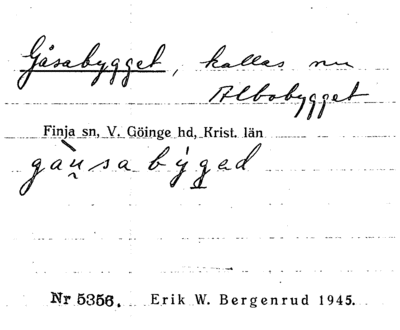 Gåsabygget, kallas nu
Albobygget
Finja sn, V. Göinge hd, Krist. län
gàu̯sa bẏg̲ed
Nr 5356. Erik W. Bergenrud 1945.